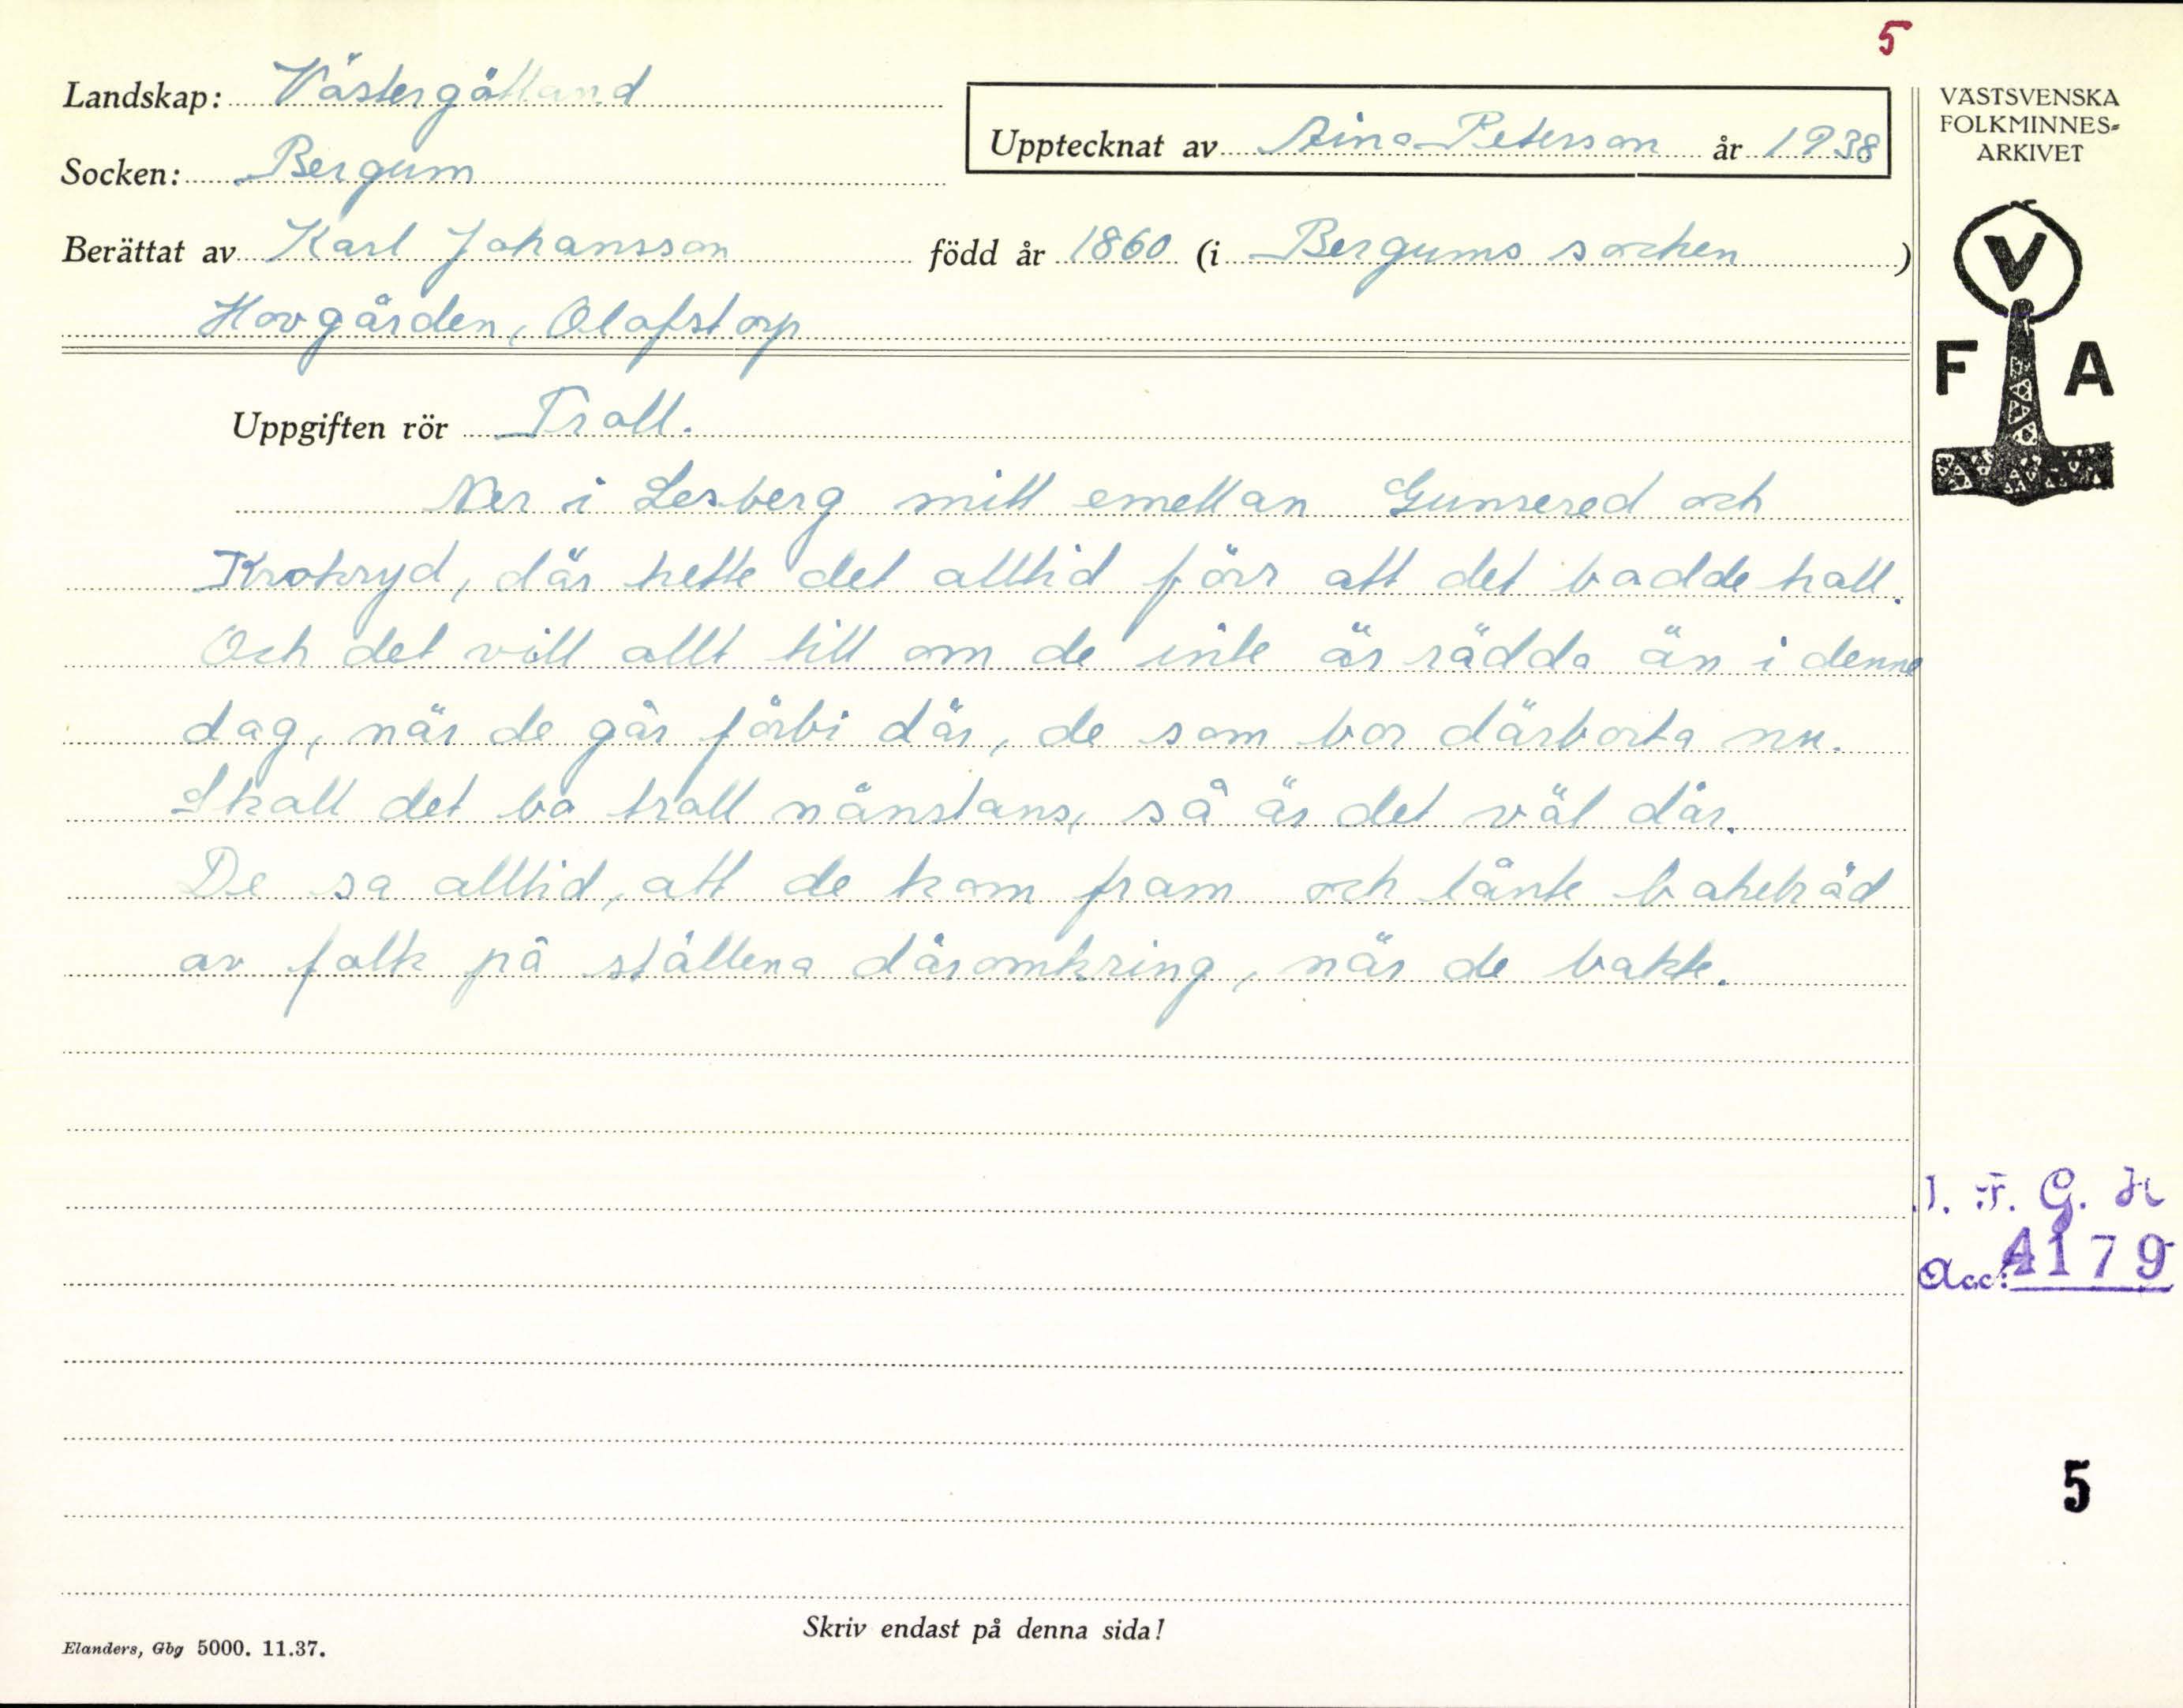 5
Landskap: Västergötland
Upptecknat av Aina Peterson år 1938
VÄSTSVENSKA
FOLKMINNES-
ARKIVET
Socken: Bergum
Berättat av Karl Johansson född år 1860 (i Bergums socken)
Hovgården, Olofstorp
V
F A
Uppgiften rör Troll.
Ner i Lexberg mitt emellan Gunnered och
Krokryd, där hette det alltid förr att det bodde troll.
Och det vill allt till om de inte är rädda än i denne
dag, när de går förbi där, de som bor därborta nu.
Skall det bo troll nånstans, så är det väl där.
De sa alltid, att de kom fram och lånte baketråd
av folk på ställena däromkring, när de bakte.
I. F. G. H
Acc: 4179
5
Skriv endast på denna sida!
Elanders, Gbg 5000. 11.37.